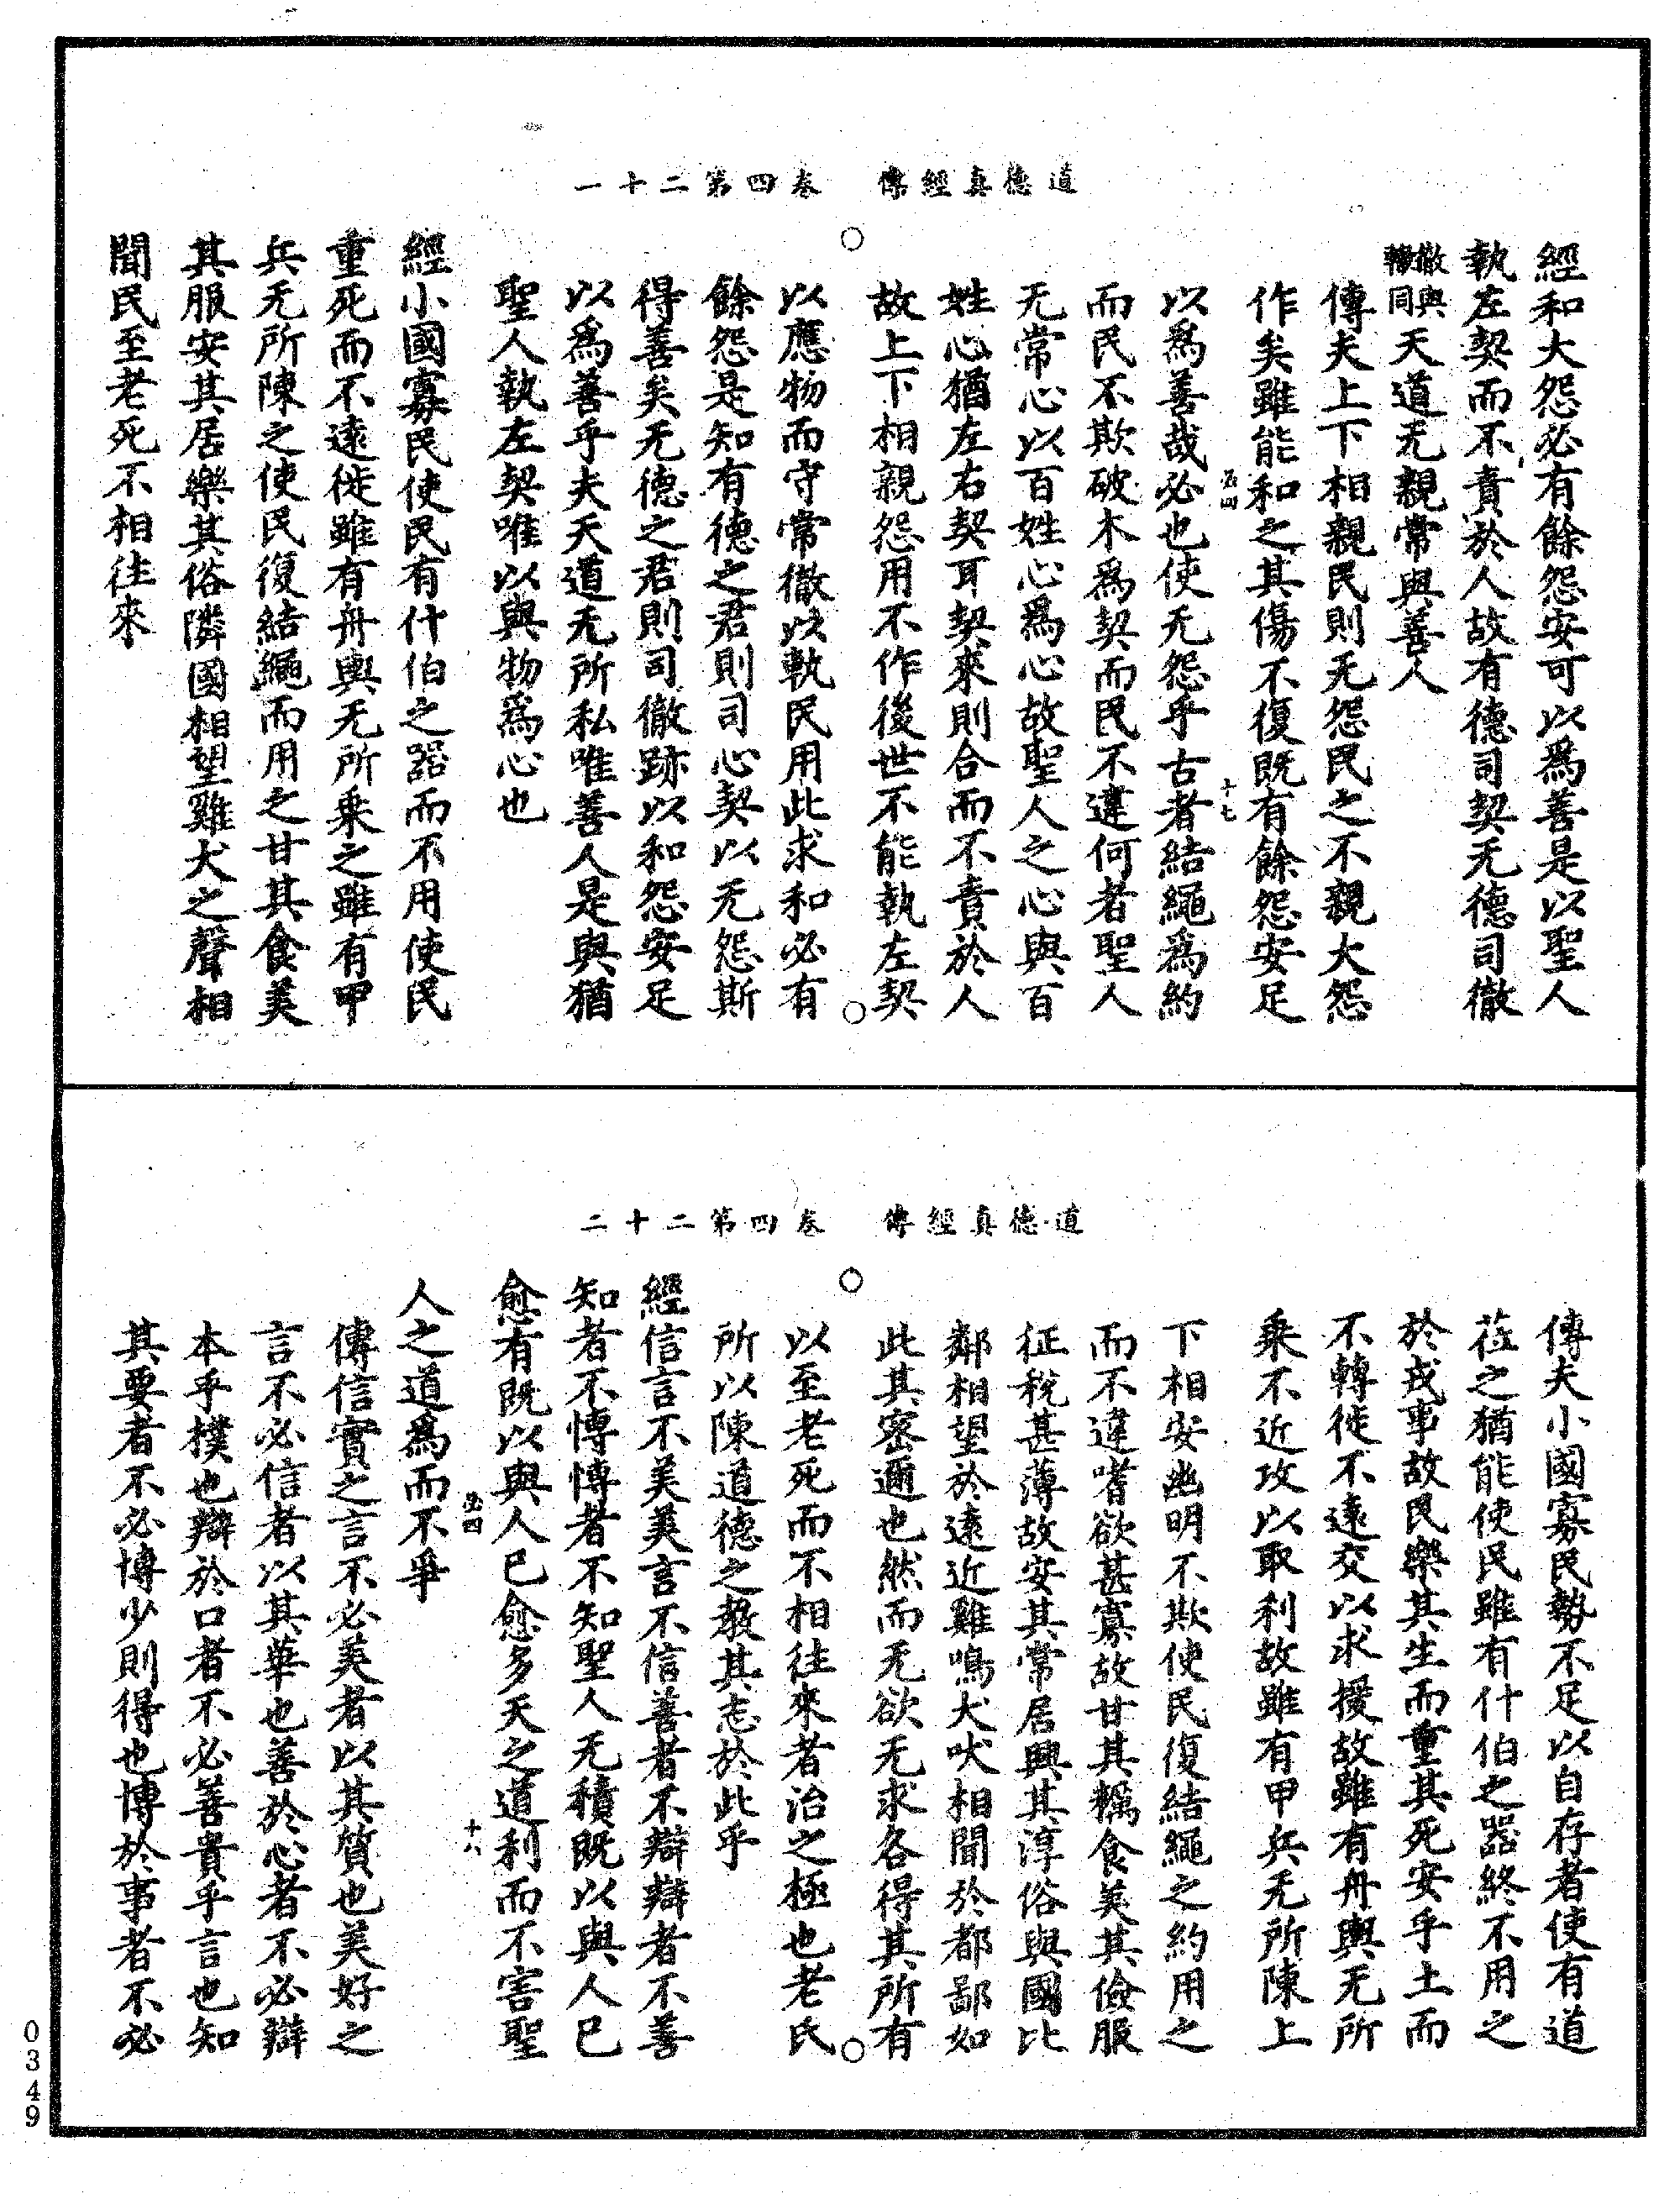 道德真經傳　卷四第二十一
經和大怨必有餘怨安可以爲善是以聖人
執左契而不責於人故有德司契无德司徹
徹與轍同天道无親常與善人
傳夫上下相親民則无怨民之不親大怨
作矣雖能和之其傷不復既有餘怨安足
十七
以爲善哉必也使无怨乎古者結繩爲約
而民不欺破木爲契而民不違何者聖人
无常心以百姓心爲心故聖人之心與百
姓心猶左右契耳契來則合而不責於人
故上下相親怨用不作後世不能執左契
以應物而守常徹以軌民用此求和必有
餘怨是知有德之君則司心契以无怨斯
得善矣无德之君則司徹跡以和怨安足
以爲善乎夫天道无所私唯善人是與猶
聖人執左契唯以與物爲心也
經小國寡民使民有什伯之器而不用使民
重死而不遠徙雖有舟輿无所乘之雖有甲
兵无所陳之使民復結繩而用之甘其食美
其服安其居樂其俗隣國相望雞犬之聲相
聞民至老死不相往來
道德真經傳　卷四第二十二
傳夫小國寡民勢不足以自存者使有道
莅之猶能使民雖有什伯之器終不用之
於戎事故民樂其生而重其死安乎土而
不轉徙不遠交以求援故雖有舟輿无所
乘不近攻以取利故雖有甲兵无所陳上
下相安幽明不欺使民復結繩之約用之
而不違嗜欲甚寡故甘其糲食美其儉服
征稅甚薄故安其常居興其淳俗與國比
鄰相望於遠近雞鳴犬吠相聞於都鄙如
此其密邇也然而无欲无求各得其所有
以至老死而不相往來者治之極也老氏
所以陳道德之教其志於此乎
經信言不美美言不信善者不辯辯者不善
知者不愽愽者不知聖人无積既以與人已
愈有既以與人已愈多天之道利而不害聖
十八
人之道爲而不爭
傳信實之言不必美者以其質也美好之
言不必信者以其華也善於心者不必辯
本乎樸也辯於口者不必善貴乎言也知
其要者不必博少則得也博於事者不必
0349